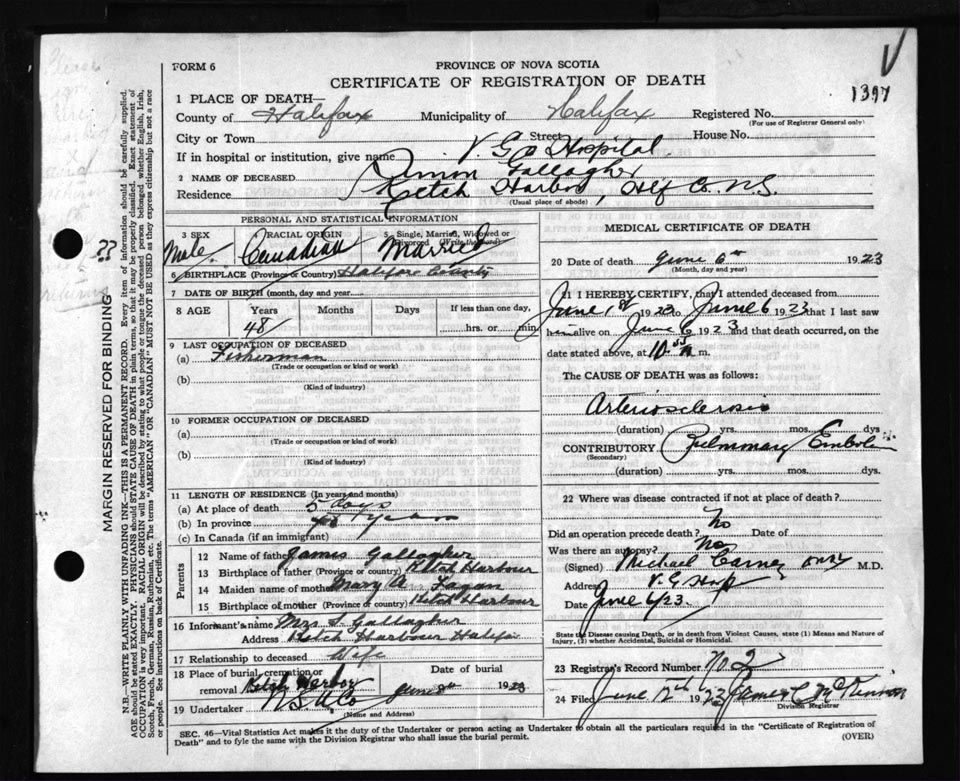 FORM 6
PROVINCE OF NOVA SCOTIA
CERTIFICATE OF REGISTRATION OF DEATH
1397
1 PLACE OF DEATH—
County of Halifax Municipality of Halifax Registered No.
(For use of Registrar General only)
City or Town Street House No.
If in hospital or institution, give name V. G. Hospital
2 NAME OF DECEASED Simon Gallagher
Residence Ketch Harbor, Hfx Co. N.S.
(Usual place of abode)
PERSONAL AND STATISTICAL INFORMATION
3 SEX Male. RACIAL ORIGIN Canadian 5 Single, Married, Widowed or Divorced (Write the word) Married
6 BIRTHPLACE (Province or Country) Halifax County
7 DATE OF BIRTH (month, day and year)
8 AGE Years Months Days If less than one day,
48 hrs. or min.
9 LAST OCCUPATION OF DECEASED
(a) Fisherman
(Trade or occupation or kind or work)
(b)
(Kind of industry)
10 FORMER OCCUPATION OF DECEASED
(a)
(Trade or occupation or kind of work)
(b)
(Kind of industry)
11 LENGTH OF RESIDENCE (In years and months)
(a) At place of death 5 days
(b) In province 48 years
(c) In Canada (if an immigrant)
Parents
12 Name of father James Gallagher
13 Birthplace of father (Province or country) Ketch Harbour
14 Maiden name of mother Mary A. Fagan
15 Birthplace of mother (Province or country) Ketch Harbour
16 Informant's name Mrs S Gallagher
Address Ketch Harbour Halifax
17 Relationship to deceased Wife
18 Place of burial, cremation or removal Ketch Harbor Date of burial June 8th 1923
19 Undertaker N.S.U.Co
(Name and Address)
MEDICAL CERTIFICATE OF DEATH
20 Date of death June 6th 1923
(Month, day and year)
21 I HEREBY CERTIFY, that I attended deceased from
June 1st 1923 to June 6 1923 that I last saw
him alive on June 6 1923 and that death occurred, on
the date stated above, at 10 m.
The CAUSE OF DEATH was as follows:
Arteriosclerosis
(duration) yrs. mos. dys
CONTRIBUTORY Pulmonary Embolism
(Secondary)
(duration) yrs. mos. dys.
22 Where was disease contracted if not at place of death?
Did an operation precede death? No Date of
Was there an autopsy? No
(Signed) Michael Carney M.D.
Address V. G. Hosp
Date June 6/23
State the Disease causing Death, or in death from Violent Causes, state (1) Means and Nature of Injury, (2) whether Accidental, Suicidal or Homicidal.
23 Registrar's Record Number No 2
24 Filed June 12th 1923 James C McKinnon
Division Registrar
SEC. 46—Vital Statistics Act makes it the duty of the Undertaker or person acting as Undertaker to obtain all the particulars required in the "Certificate of Registration of
Death" and to fyle the same with the Division Registrar who shall issue the burial permit. (OVER)
MARGIN RESERVED FOR BINDING
N.B.—WRITE PLAINLY WITH UNFADING INK—THIS IS A PERMANENT RECORD. Every item of information should be carefully supplied.
AGE should be stated EXACTLY. PHYSICIANS should STATE CAUSE OF DEATH in plain terms, so that it may be properly classified. Exact statement of
OCCUPATION is very important. RACIAL ORIGIN will be described by stating to what people or tongue the deceased person belonged whether English, Irish,
Scotch, French, German, Russian, Ruthenian, etc. The terms "AMERICAN" OR "CANADIAN" MUST NOT BE USED as they express citizenship but not a race
or people. See instructions on back of Certificate.
??